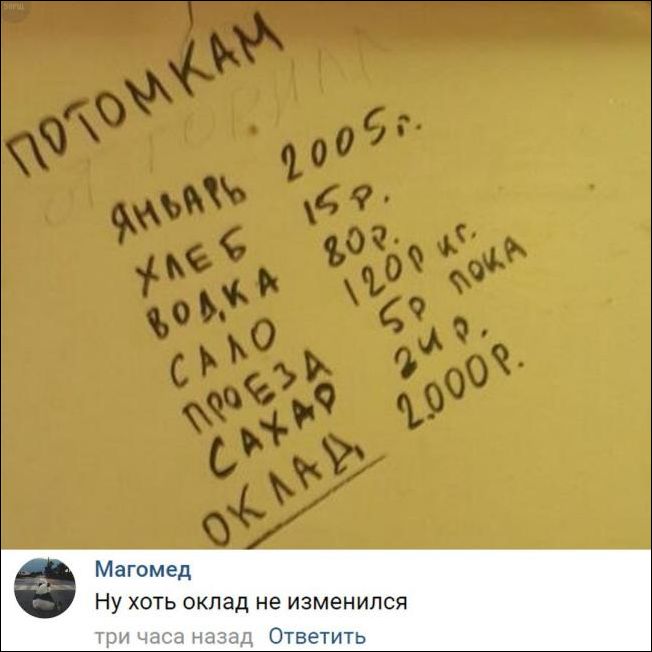 ПОТОМКАМ
ЯНВАРЬ 2005г.
ХЛЕБ 15р.
ВОДКА 80р.
САЛО 120р кг.
ПРОЕЗД 5р ПОКА
САХАР 24 р.
ОКЛАД 2.000р.
Магомед
Ну хоть оклад не изменился
три часа назад Ответить